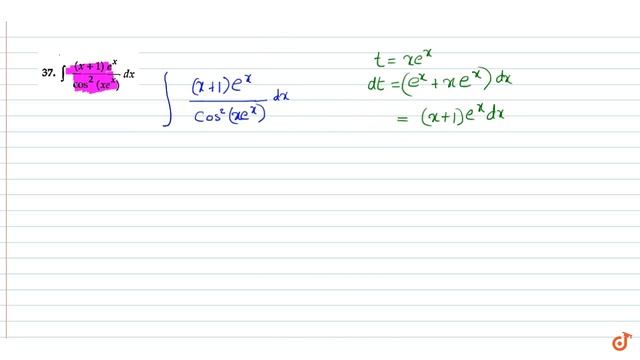 37. ∫ (x + 1) eˣ / cos² (xeˣ) dx
∫ (x+1)eˣ / Cos²(xeˣ) dx
t = xeˣ
dt = (eˣ + x eˣ) dx
= (x+1)eˣ dx